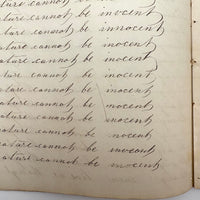 ature cannot be inocent
ature cannot be innocent
ature cannot be inocent
ature cannot be inocent
ature cannot be inocent
ature cannot be inocent
ature cannot be inocent
ature cannot be inocent
ature cannot be nocent
ature cannot be inocent
ature cannot be inocent